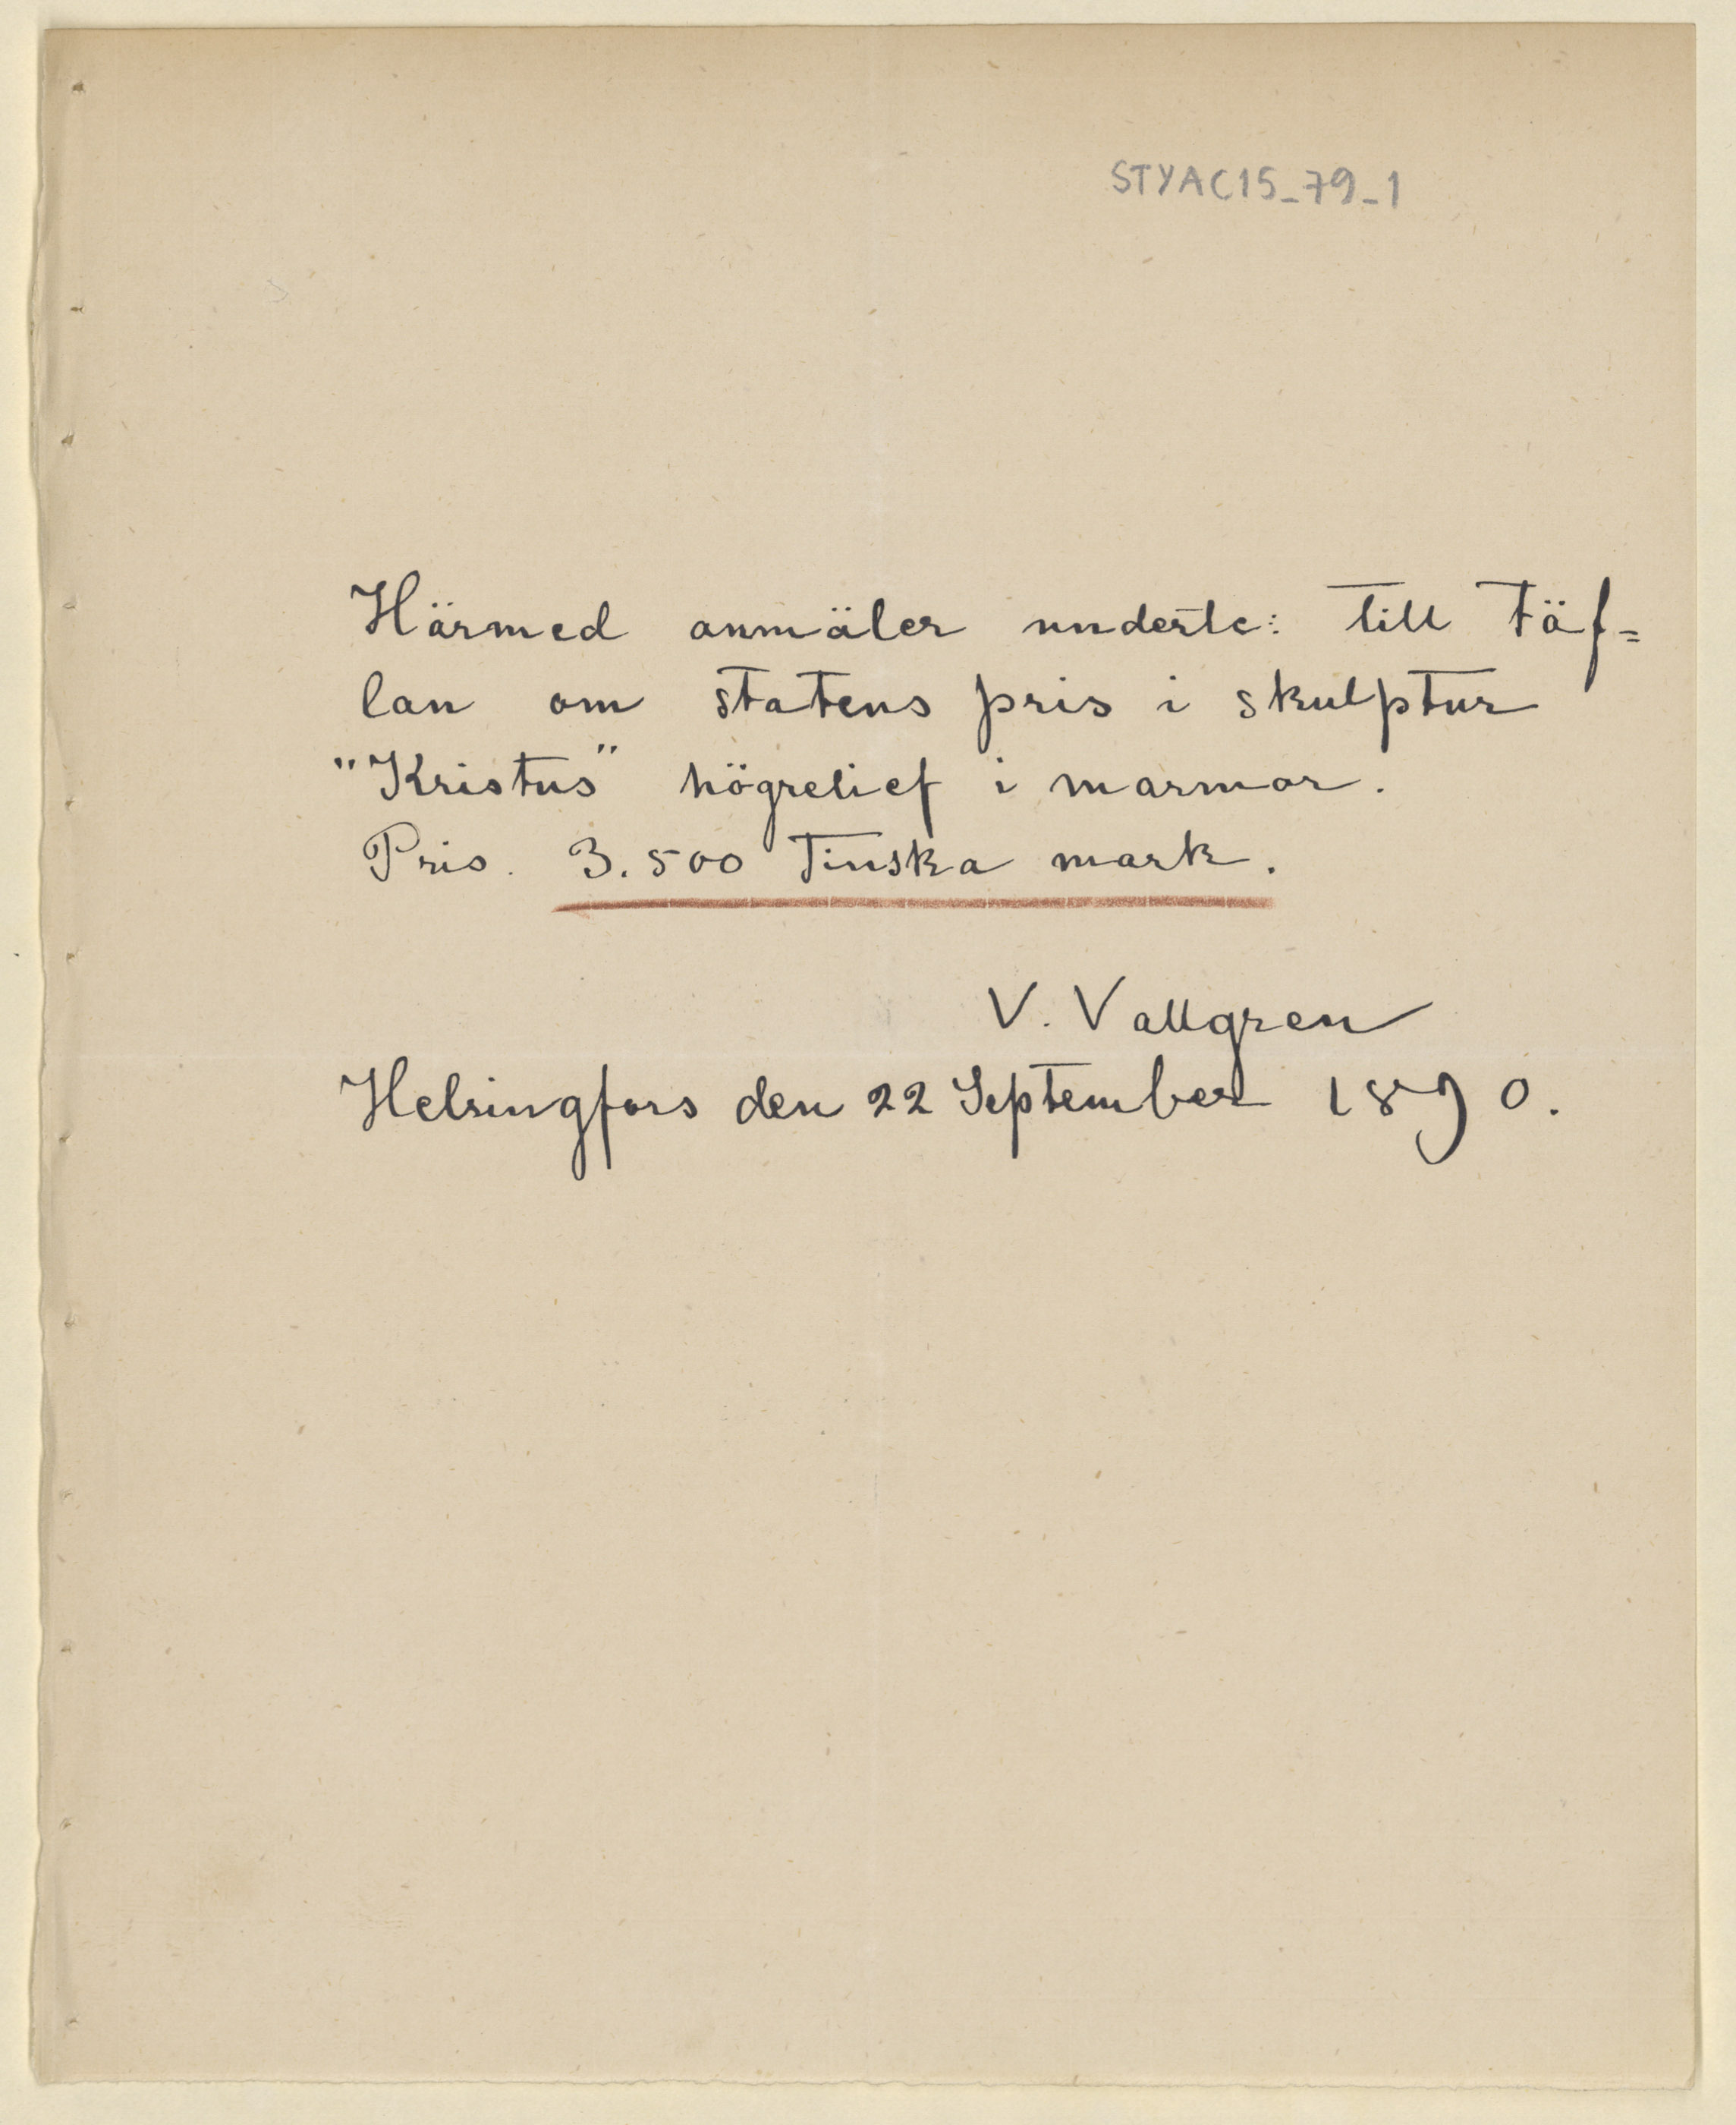 STYAC15_79_1
Härmed anmäler underte: till täf=
lan om statens pris i skulptur
"Kristus" högrelief i marmor.
Pris. 3.500 Finska mark.
V. Vallgren
Helsingfors den 22 September 1890.